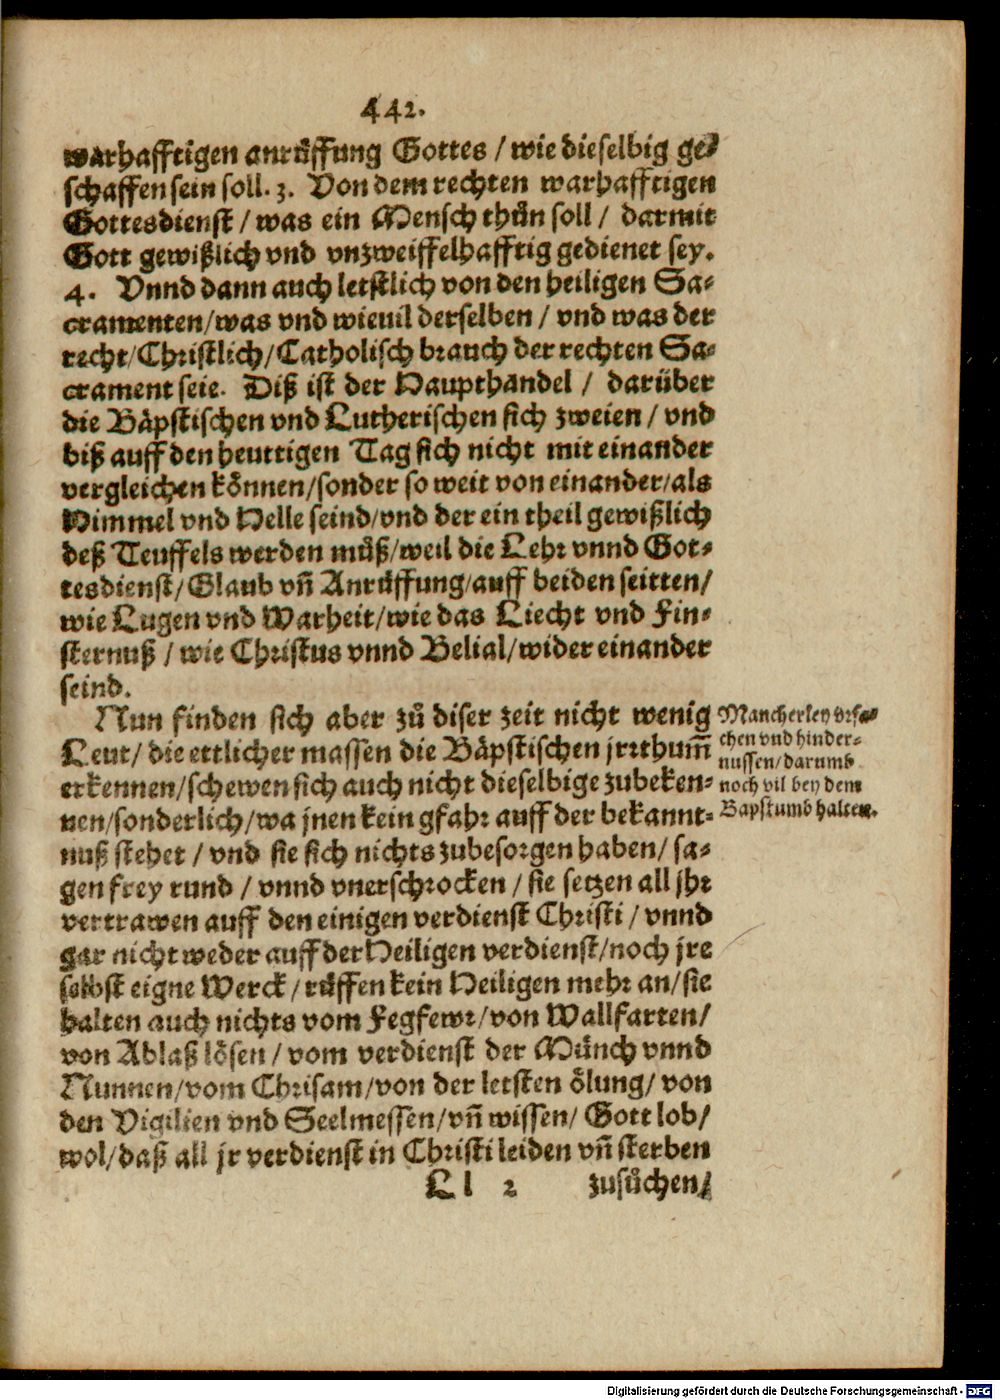 442.
warhafftigen anrůffung Gottes / wie dieselbig ge⸗
schaffen sein soll. 3. Von dem rechten warhafftigen
Gottesdienst / was ein Mensch thůn soll / darmit
Gott gewißlich vnd vnzweiffelhafftig gedienet sey.
4. Vnnd dann auch letstlich von den heiligen Sa⸗
cramenten/was vnd wieuil derselben / vnd was der
recht/Christlich/Catholisch brauch der rechten Sa⸗
crament seie. Diß ist der Haupthandel / darüber
die Bäpstischen vnd Lutherischen sich zweien / vnd
biß auff den heuttigen Tag sich nicht mit einander
vergleichen können/sonder so weit von einander/als
Himmel vnd Helle seind/vnd der ein theil gewißlich
deß Teuffels werden můß/weil die Lehr vnnd Got⸗
tesdienst/Glaub vñ Anrůffung/auff beiden seitten/
wie Lugen vnd Warheit/wie das Liecht vnd Fin⸗
sternuß / wie Christus vnnd Belial/wider einander
seind.
Nun finden sich aber zů diser zeit nicht wenig
Leut/ die ettlicher massen die Bäpstischen jrrthum̃
erkennen/schewen sich auch nicht dieselbige zubeken⸗
nen/sonderlich/wa jnen kein gfahr auff der bekannt⸗
nuß stehet / vnd sie sich nichts zubesorgen haben/ sa⸗
gen frey rund / vnnd vnerschrocken / sie setzen all jhr
vertrawen auff den einigen verdienst Christi / vnnd
gar nicht weder auff der Heiligen verdienst/noch jre
selbst eigne Werck / růffen kein Heiligen mehr an/sie
halten auch nichts vom Fegfewr/von Wallfarten/
von Ablaß lösen / vom verdienst der Münch vnnd
Nunnen/vom Chrisam/von der letsten ölung/ von
den Vigilien vnd Seelmessen/vñ wissen/ Gott lob/
wol/daß all jr verdienst in Christi leiden vñ sterben
Ll 2 zusůchen/
Mancherley vrsa⸗
chen vnd hinder⸗
nussen/darumb
noch vil bey dem
Bapstumb halten.
Digitalisierung gefördert durch die Deutsche Forschungsgemeinschaft - DFG